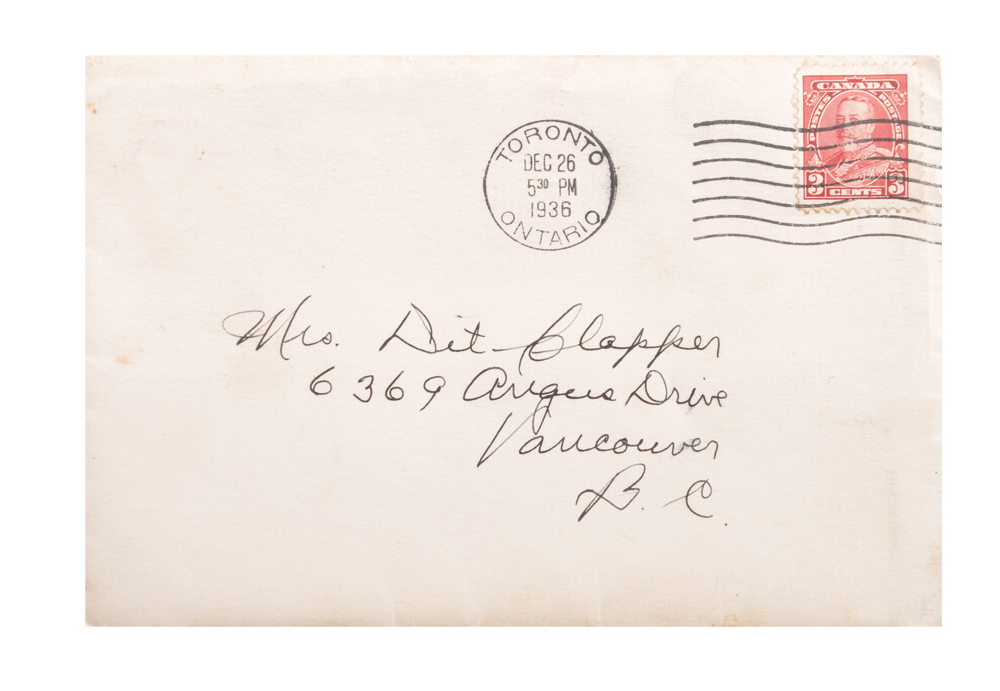 CANADA
POSTES POSTAGE
3 CENTS 3
TORONTO
DEC 26
5 30 PM
1936
ONTARIO
Mrs. Dit Clapper
6369 Angus Drive
Vancouver
B. C.